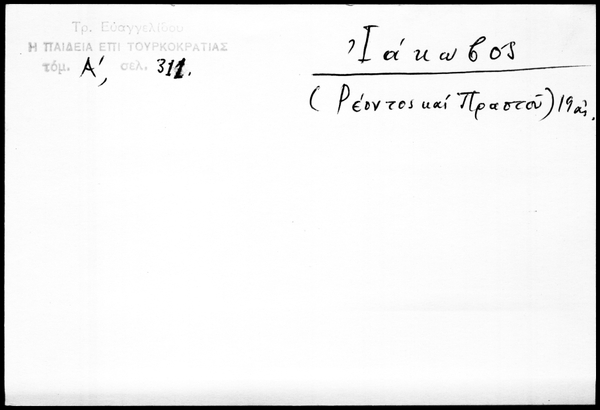 Τρ. Εὐαγγελίδου
Η ΠΑΙΔΕΙΑ ΕΠΙ ΤΟΥΡΚΟΚΡΑΤΙΑΣ
τόμ. Α', σελ. 311.
Ἰάκωβος
(Ρέοντος καί Πραστοῦ) 19 αἰ.